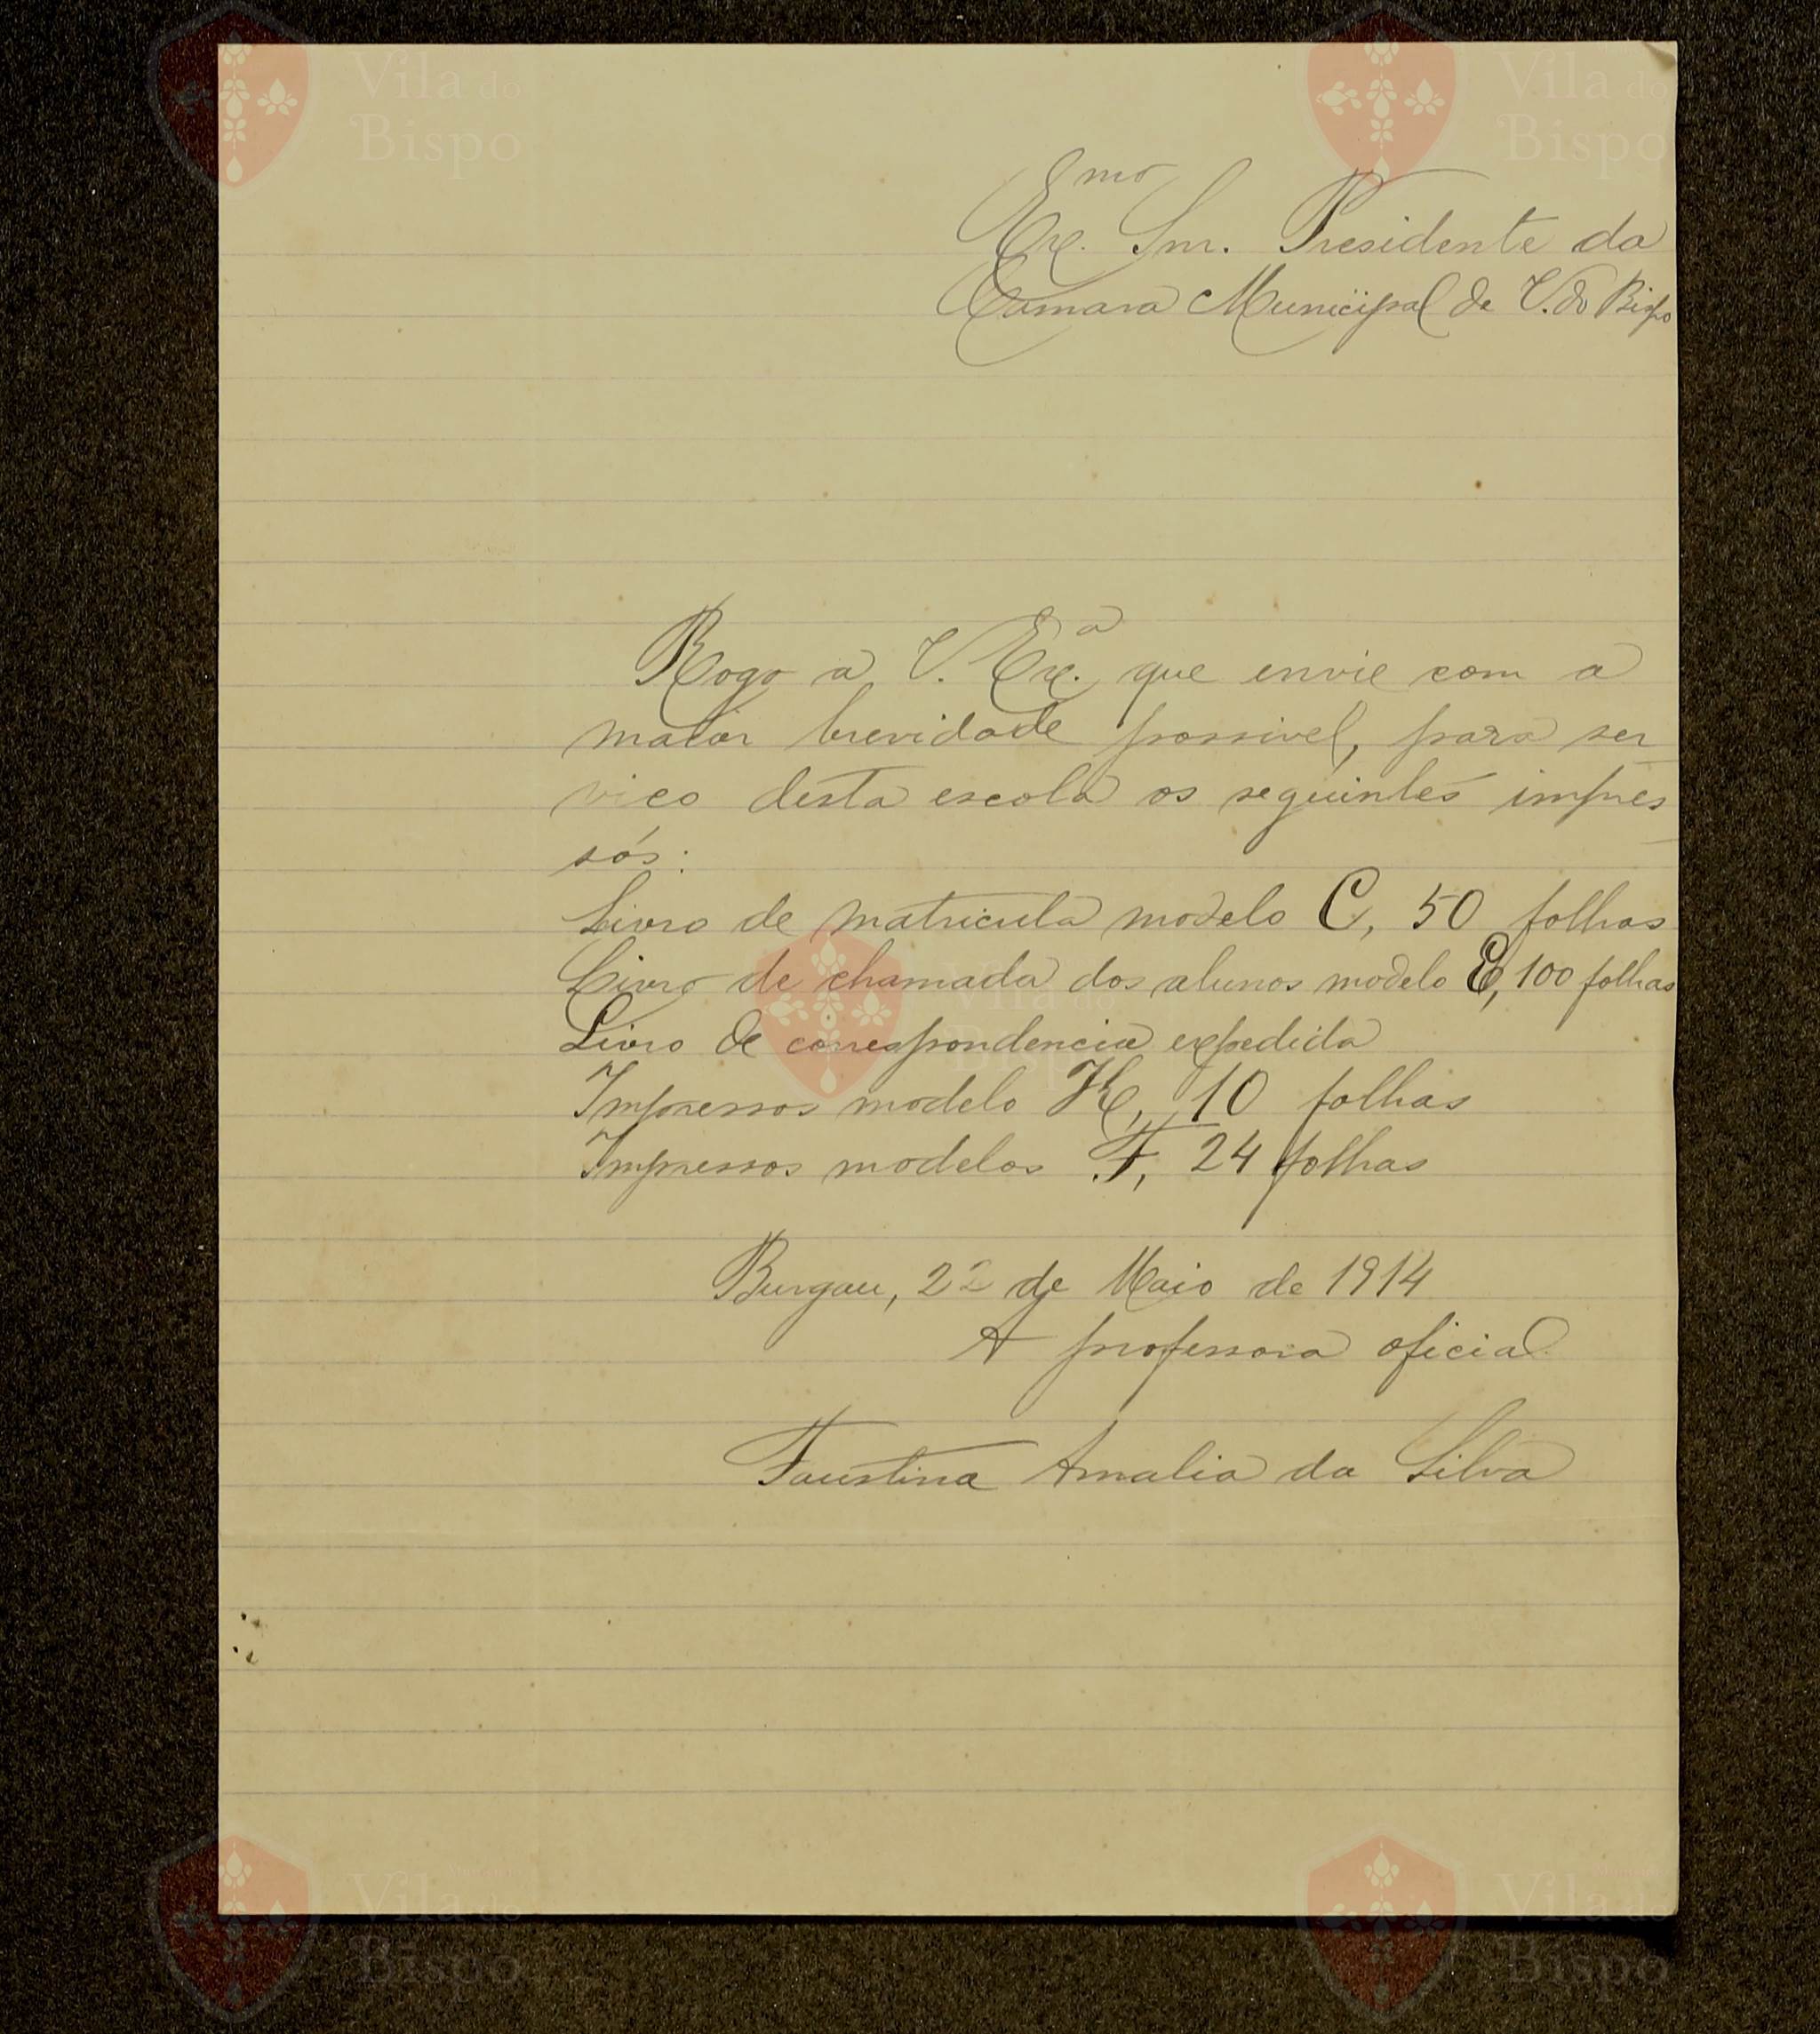 Ex.mo Snr. Presidente da
Camara Municipal de V. do Bispo
Rogo a V. Ex.a que envie com a
maior brevidade possivel, para ser
viço desta escola os seguintes impres
sos:
Livro de matricula modelo C, 50 folhas
Livro de chamada dos alunos modelo E, 100 folhas
Livro de correspondencia expedida
Impressos modelo H, 10 folhas
Impressos modelos F, 24 folhas
Burgau, 22 de Maio de 1914
A professora oficial
Faustina Amalia da Silva
Vila do
Bispo
Vila do
Bispo
Vila do
Bispo
Vila do
Bispo
Vila do
Bispo